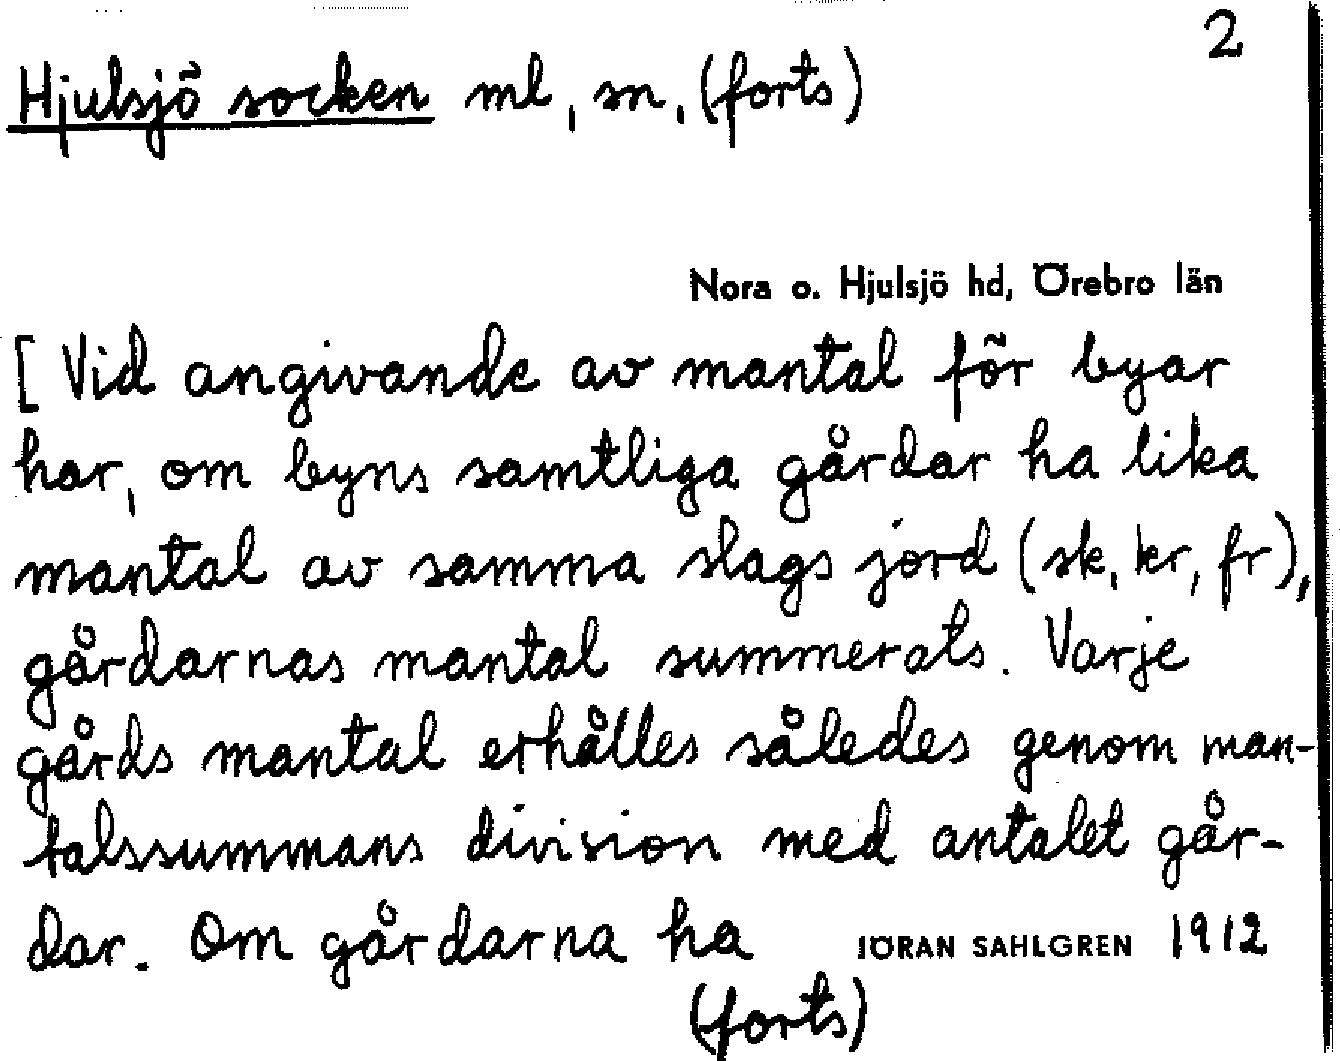 2
Hjulsjö socken ml, sn, (forts)
Nora o. Hjulsjö hd, Örebro län
[ Vid angivande av mantal för byar
har, om byns samtliga gårdar ha lika
mantal av samma slags jord (sk, kr, fr),
gårdarnas mantal summerats. Varje
gårds mantal erhålles således genom man-
talssummans division med antalet går-
dar. Om gårdarna ha
JÖRAN SAHLGREN 1912
(forts)